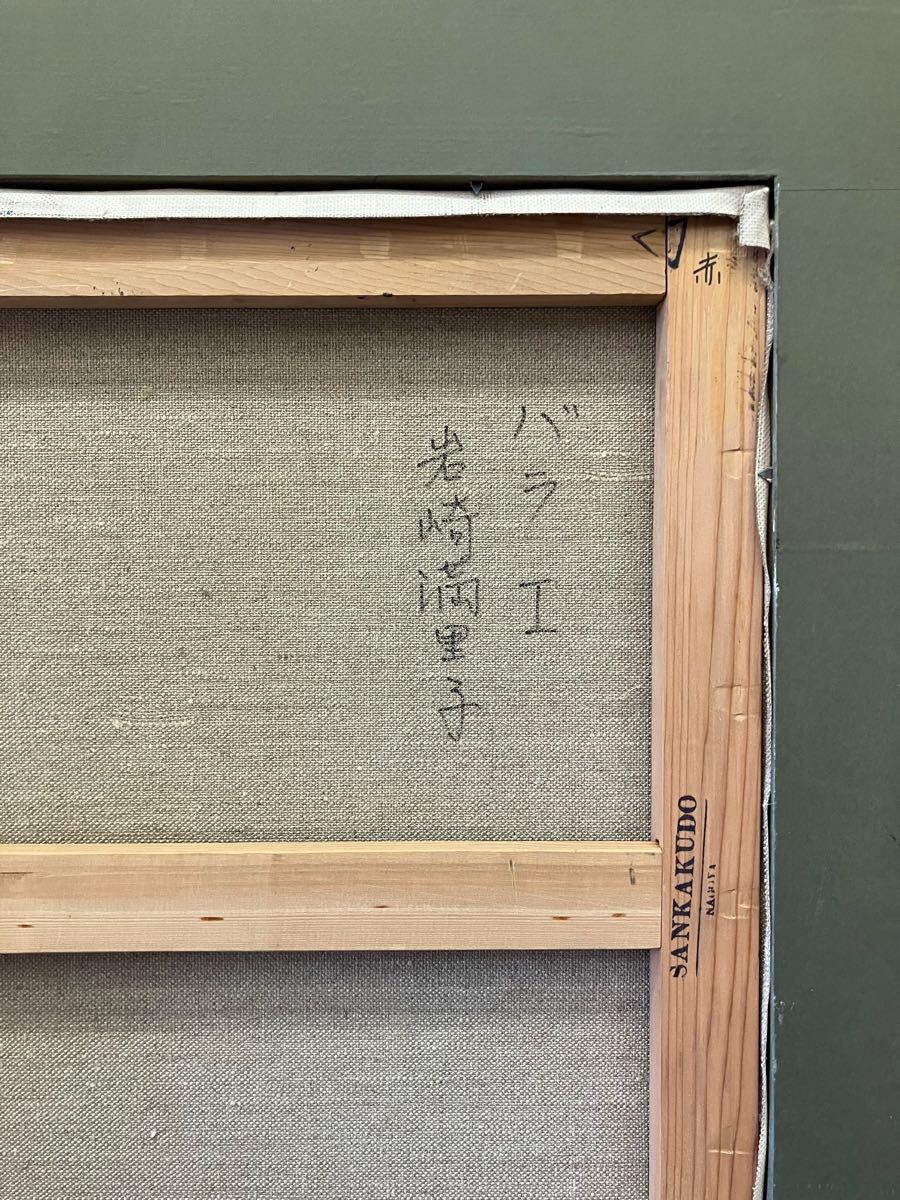 バラ エ
岩崎満里子
赤
SANKAKUDO
NAGOYA